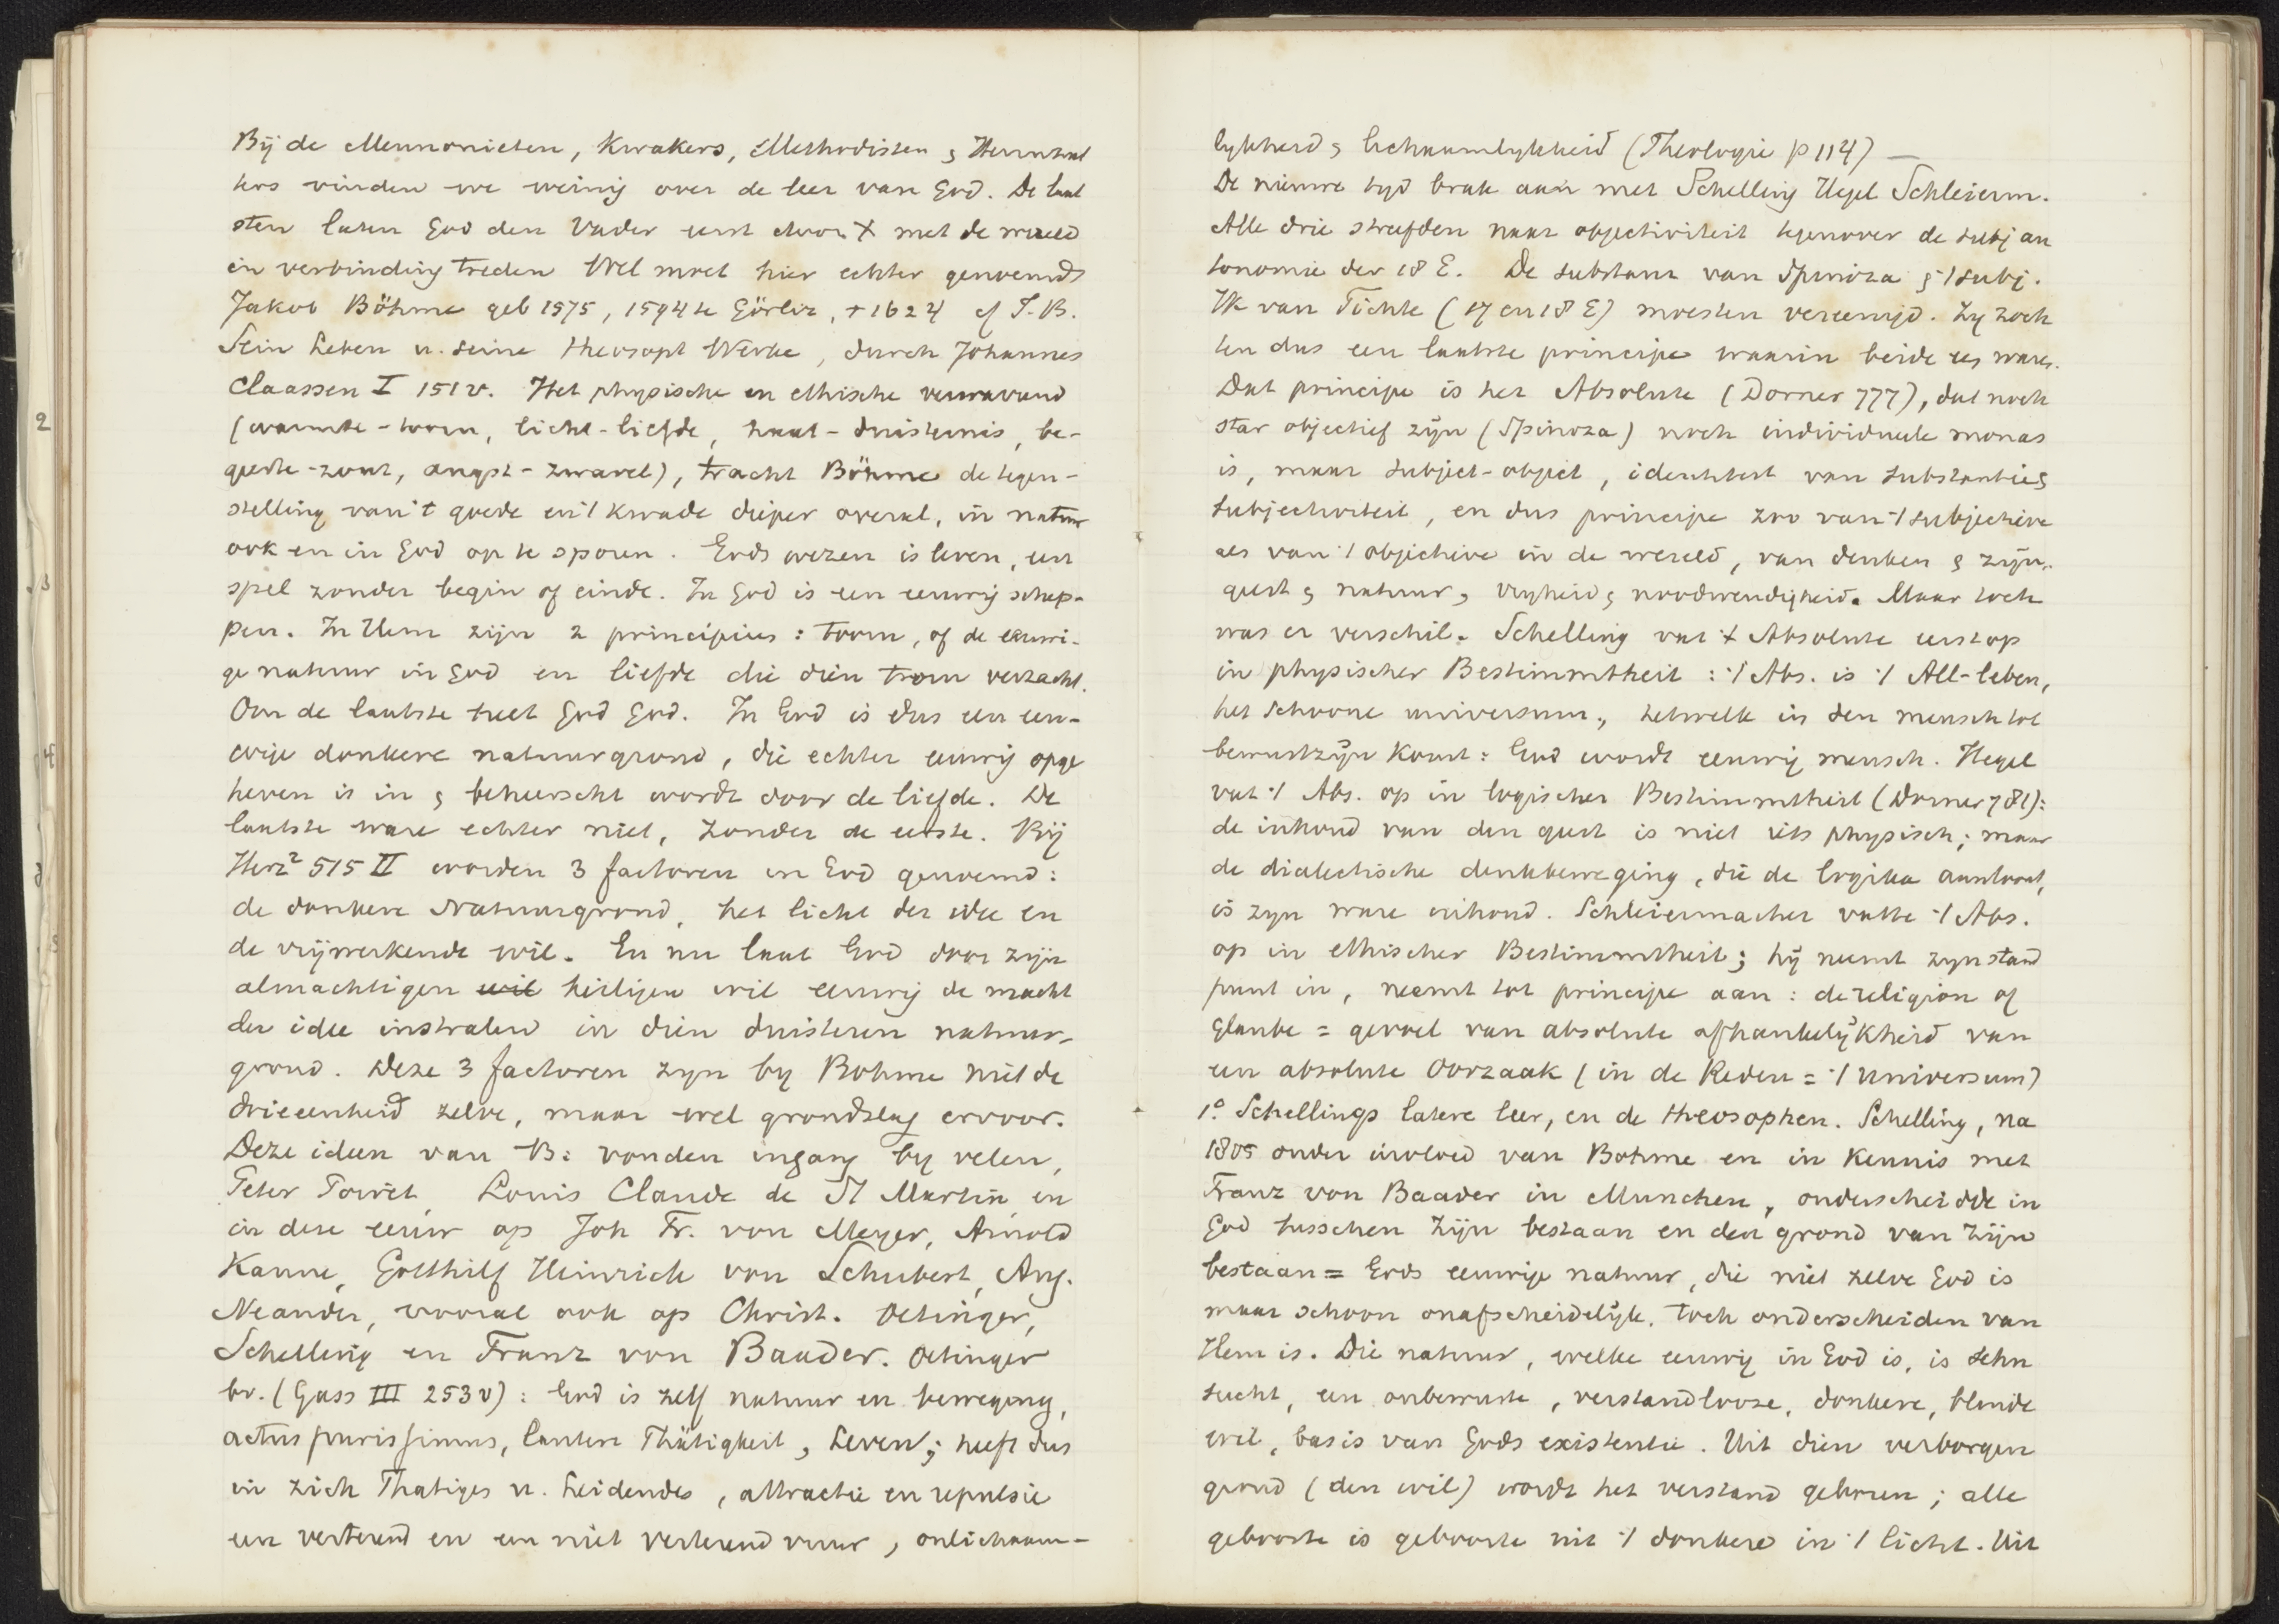 Bij de Mennonieten, Kwakers, Methodisten & Hernhut
ters vinden we weinig over de leer van God. De laat
sten laten God den Vader eerst door X met de wereld
in verbinding treden Wel moet hier echter genoemd
Jakob Böhme geb 1575, 1594 te Görlitz, + 1624 cf J. B.
Sein Leben u. seine theosoph Werke, durch Johannes
Claassen I 151 v. Het physische en ethische verwarrend
(warmte-toorn, licht-liefde, haat-duisternis, be-
geerte-zout, angst-zwavel), tracht Böhme de tegen-
stelling van 't goede en 't kwade dieper overal, in natuur
ook en in God op te sporen. Gods wezen is leven, een
spel zonder begin of einde. In God is een eeuwig schep-
pen. In Hem zijn 2 principiën: toorn, of de eeuwi-
ge natuur in God en liefde die dien toorn verzacht.
Om de laatste heet God God. In God is dus een eeu-
wige donkere natuurgrond, die echter eeuwig opge
heven is in & beheerscht wordt door de liefde. De
laatste ware echter niet, zonder de eerste. Bij
Herz² 515 II worden 3 factoren in God genoemd:
de donkere Natuurgrond, het licht der idee en
de vrijwerkende wil. En nu laat God door zijn
almachtigen wil heiligen wil eeuwig de macht
der idee instralen in dien duisteren natuur-
grond. Deze 3 factoren zyn by Bohme niet de
drieeenheid zelve, maar wel grondslag ervoor.
Deze ideen van B: vonden ingang by velen,
Peter Poiret, Louis Claude de St Martin, en
in deze eeuw op Joh Fr. von Meyer, Arnold
Kanne, Gotthilf Heinrich von Schubert, Aug.
Neander, vooral ook op Christ. Oetinger,
Schelling en Franz von Baader. Oetinger
bv. (Gass III 253 v): God is zelf natuur en beweging,
actus purissimus, lautere Thätigkeit, Leven; heeft dus
in zich Thatiges u. Leidendes, attractie en repulsie
een verterend en een niet verterend vuur, onlichaam-
lykheid & lichaamlykheid (Theologie p 114) —
De nieuwe tyd brak aan met Schelling Hegel Schleierm.
Alle drie streefden naar objectiviteit tegenover de subj au
tonomie der 18 E. De substanz van Spinoza & 't subj.
Ik van Fichte (17 en 18 E) moesten vereenigd. Zy zoch
ten dus een laatste principe waarin beide een waren.
Dat principe is het Absolute (Dorner 777), dat noch
star objectief zijn (Spinoza) noch individueele monas
is, maar subject-object, identiteit van substantie &
subjectiviteit, en dus principe zoo van 't subjectieve
als van 't objectieve in de wereld, van denken & zijn,
geest & natuur, vryheid & noodwendigheid. Maar toch
was er verschil. Schelling vat 't Absolute eerst op
in physischer Bestimmtheit: 't Abs. is 't All-leben,
het schoone universum, hetwelk in den mensch tot
bewustzijn komt: God wordt eeuwig mensch. Hegel
vat 't Abs. op in logischer Bestimmtheit (Dorner 781):
de inhoud van den geest is niet iets physisch; maar
de dialectische denkbeweging, die de logika aantoont,
is zyn ware inhoud. Schleiermacher vatte 't Abs.
op in ethischer Bestimmtheit; hij neemt zyn stand
punt in, neemt tot principe aan: de religion of
Glaube = gevoel van absolute afhankelijkheid van
een absolute Oorzaak (in de Reden = 't universum)
1° Schellings latere leer, en de theosophen. Schelling, na
1805 onder invloed van Bohme en in kennis met
Franz von Baader in Munchen, onderscheidde in
God tusschen Zijn bestaan en den grond van Zijn
bestaan = Gods eeuwige natuur, die niet zelve God is
maar schoon onafscheidelijk, toch onderscheiden van
Hem is. Die natuur, welke eeuwig in God is, is Sehn
sucht, een onbewuste, verstandlooze, donkere, blinde
wil, basis van Gods existentie. Uit dien verborgen
grond (den wil) wordt het verstand geboren; alle
geboorte is geboorte uit 't donkere in 't licht. Uit